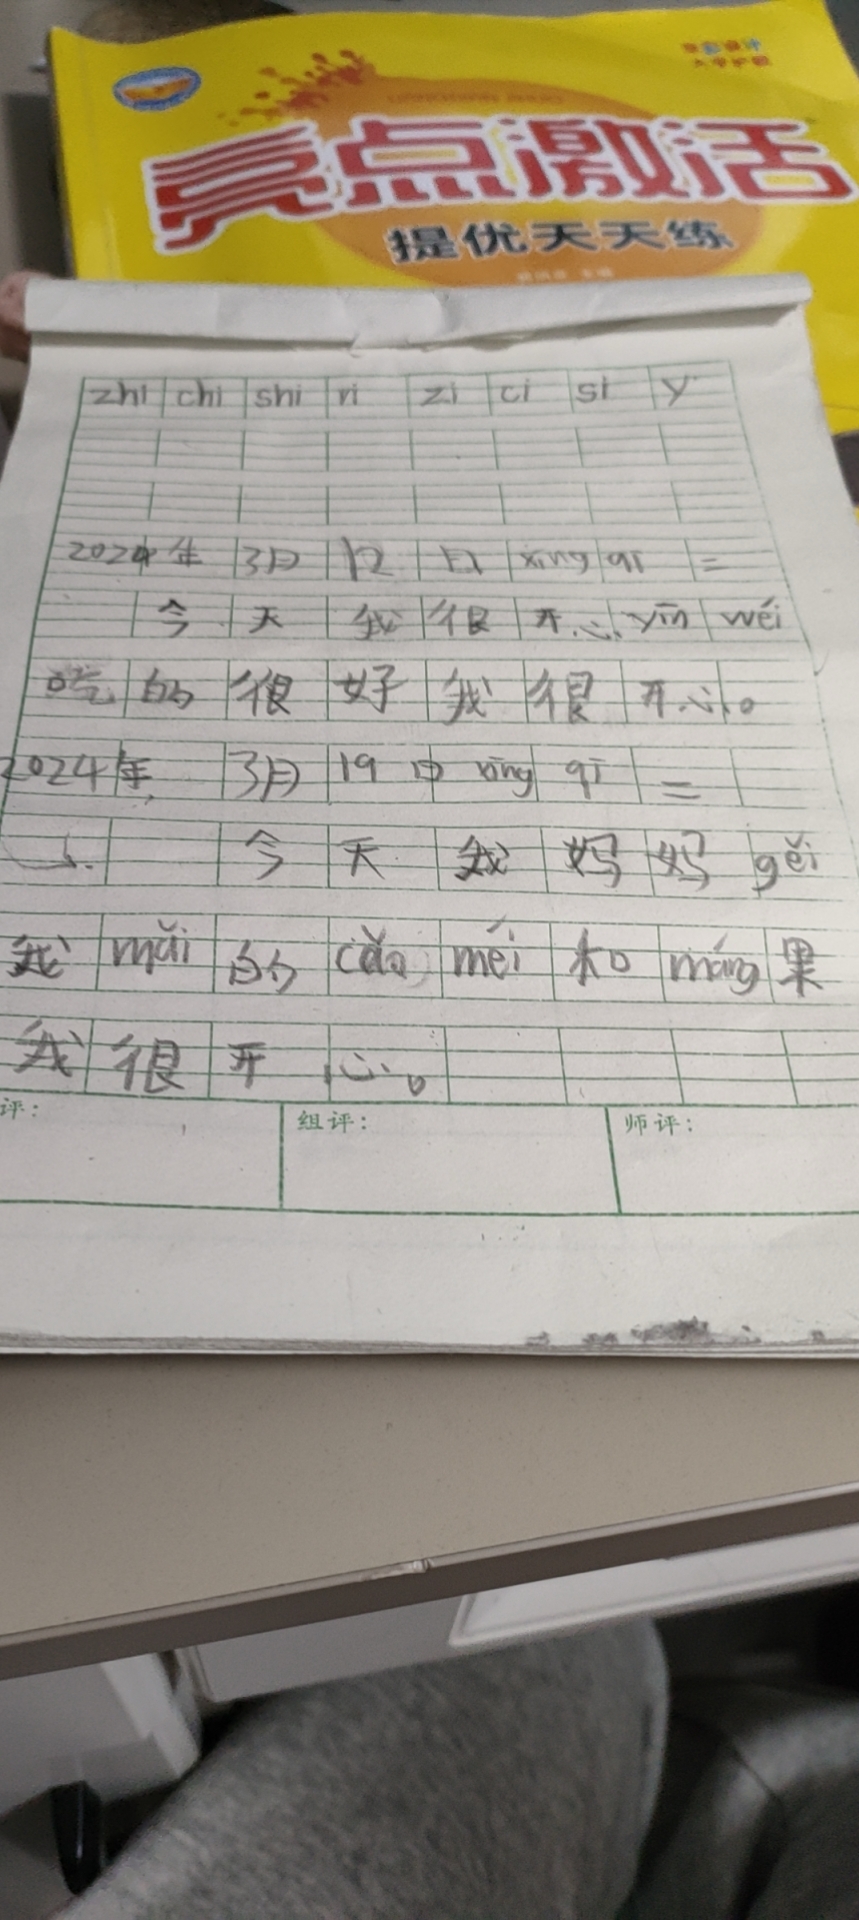 亮点激活
提优天天练
zhi chi shi ri zi ci si y
2024年 3月 12 日 xīng qī 二
今天我很开心 yīn wéi
吃的很好我很开心。
2024年 3月 19 日 xīng qī 二
今天我妈妈 gěi
我 mǎi 的 cǎo méi 和 máng 果
我很开心。
评：
组评：
师评：